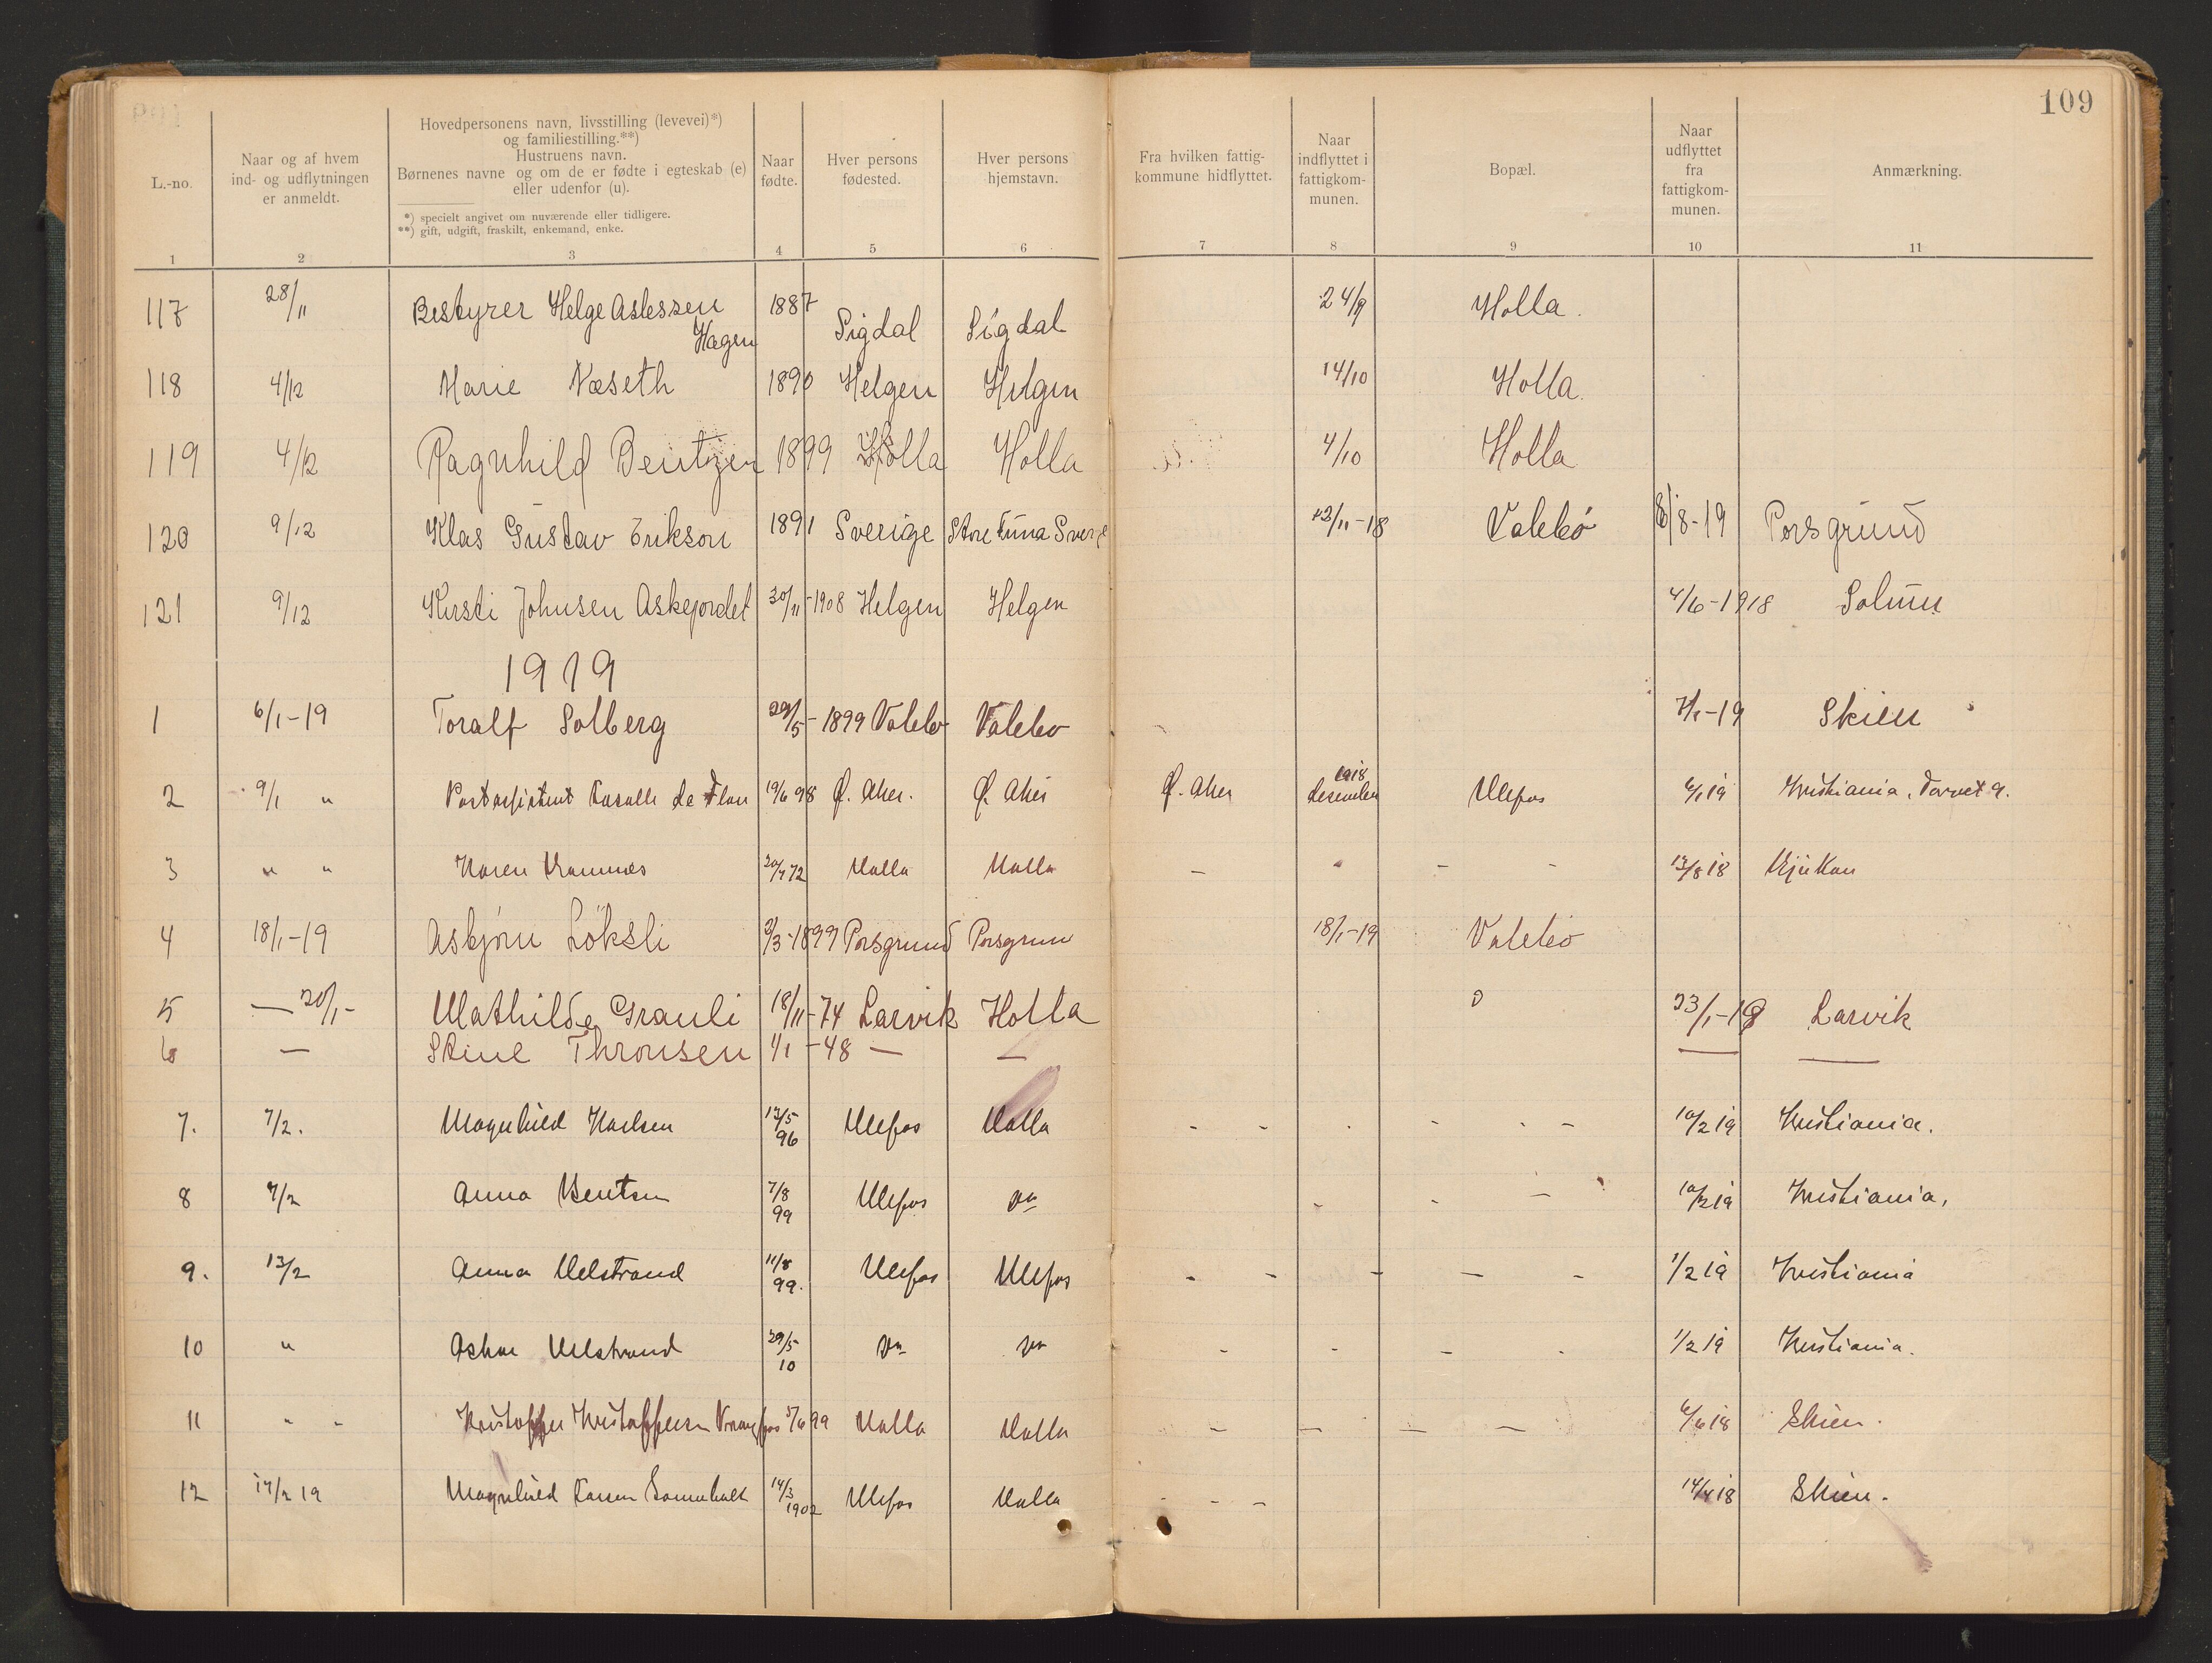 109
L.-no.
Naar og af hvem
ind- og udflytningen
er anmeldt.
Hovedpersonens navn, livsstilling (levevei)*)
og familiestilling.**)
Hustruens navn.
Børnenes navne og om de er fødte i egteskab (e)
eller udenfor (u).
*) specielt angivet om nuværende eller tidligere.
**) gift, udgift, fraskilt, enkemand, enke.
Naar
fødte.
Hver persons
fødested.
Hver persons
hjemstavn.
Fra hvilken fattig-
kommune hidflyttet.
Naar
indflyttet i
fattigkom-
munen.
Bopæl.
Naar
udflyttet
fra
fattigkom-
munen.
Anmærkning.
1 2 3 4 5 6 7 8 9 10 11
117 28/11 Bestyrer Helge Aslessen 1887 Sigdal Sigdal 24/9 Holla.
Hagen
118 4/12 Marie Næseth 1890 Helgen Helgen 14/10 Holla.
119 4/12 Ragnhild Bentzen 1899 Holla Holla 4/10 Holla
120 9/12 Klas Gustav Erikson 1891 Sverige Store Tuna 12/11-18 Valebö 8/8-19 Porsgrund
121 9/12 Kirsti Johnsen Askejordet 30/11-1908 Helgen Helgen 4/6-1918 Solum
1919
1 6/1-19 Toralf Solberg 29/5-1899 Valebo Valebo 7/1-19 Skien
2 9/1 " Postassistent 19/6 98 Ø. Aker. Ø. Aker Ø. Aker 1918 desember Ulefos 6/1 19 Kristiania, Torvet 9.
3 " " Karen 20/7 72 Holla Holla - " - - 13/8 18 Rjukan
4 18/1-19 Asbjörn Löksli 3/3-1899 Porsgrund Porsgrun 18/1-19 Valebö
5 — 20/1- Mathilde Grauli 18/11-74 Larvik Holla 23/1-19 Larvik
6 — Stine Thronsen 1/1-48 — — — —
7. 7/2. Magnhild Karlsen 13/5 96 Ulefos Holla - - - - - - 10/2 19 Kristiania.
8 7/2 Anna Bentsen 7/8 99 Ulefos do - - - 10/2 19 Kristiania,
9. 13/2 Anna Ulstrand 11/8 99. Ulefos Ulefos - - - - - 1/2 19 Kristiania
10 " Ulstrand 29/5 10 do do - - - - 1/2 19 Kristiania.
11 " " Kristoffer Kristoffersen 5/6 99 Holla Holla - - - - 6/6 18 Skien.
12 14/2 19 Magnhild 14/3 1902 Ulefos Holla - - - 14/4 18 Skien.